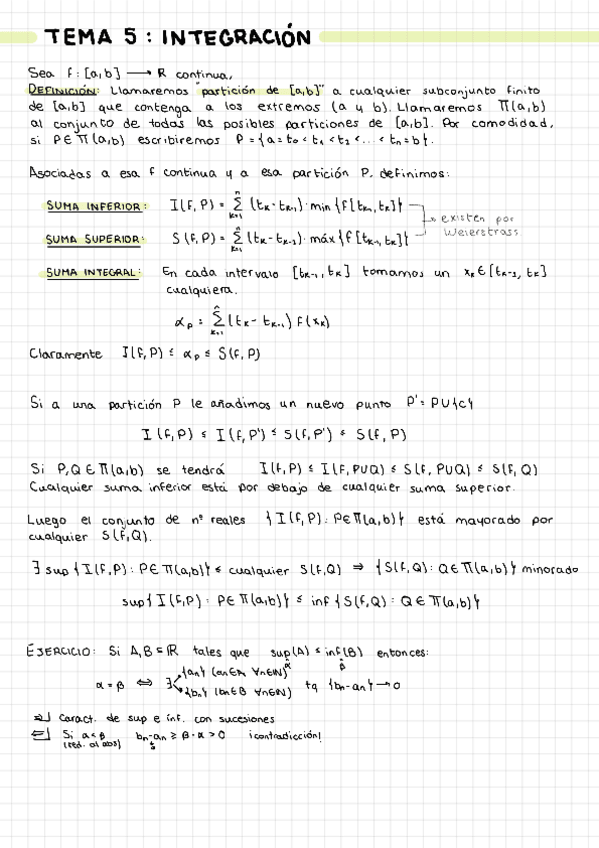 TEMA 5 : INTEGRACIÓN
Sea f : [a,b] ⟶ ℝ continua,
DEFINICIÓN: Llamaremos "partición de [a,b]" a cualquier subconjunto finito
de [a,b] que contenga a los extremos (a y b). Llamaremos Π(a,b)
al conjunto de todas las posibles particiones de [a,b]. Por comodidad,
si P∈Π(a,b) escribiremos P = {a = t₀ < t₁ < t₂ < ... < tₙ = b}.
Asociadas a esa f continua y a esa partición P, definimos:
SUMA INFERIOR: I(f,P) = Σₖ₌₁ⁿ (tₖ - tₖ₋₁) · min {f[tₖ₋₁, tₖ]}
SUMA SUPERIOR: S(f,P) = Σₖ₌₁ⁿ (tₖ - tₖ₋₁) · máx {f[tₖ₋₁, tₖ]}
existen por
Weierstrass.
SUMA INTEGRAL: En cada intervalo [tₖ₋₁, tₖ] tomamos un xₖ∈[tₖ₋₁, tₖ]
cualquiera.
αₚ = Σₖ₌₁ⁿ (tₖ - tₖ₋₁) f(xₖ)
Claramente I(f,P) ≤ αₚ ≤ S(f,P)
Si a una partición P le añadimos un nuevo punto P' = P∪{c}
I(f,P) ≤ I(f,P') ≤ S(f,P') ≤ S(f,P)
Si P,Q∈Π(a,b) se tendrá I(f,P) ≤ I(f,P∪Q) ≤ S(f,P∪Q) ≤ S(f,Q)
Cualquier suma inferior está por debajo de cualquier suma superior.
Luego el conjunto de nº reales {I(f,P) : P∈Π(a,b)} está mayorado por
cualquier S(f,Q).
∃ sup{I(f,P) : P∈Π(a,b)} ≤ cualquier S(f,Q) ⇒ {S(f,Q) : Q∈Π(a,b)} minorado
sup{I(f,P) : P∈Π(a,b)} ≤ inf{S(f,Q) : Q∈Π(a,b)}
EJERCICIO: Si A,B⊆ℝ tales que sup(A) ≤ inf(B) entonces:
α β
α = β ⇔ ∃ {aₙ} (aₙ∈A ∀n∈ℕ)
{bₙ} (bₙ∈B ∀n∈ℕ) tq {bₙ - aₙ} ⟶ 0
⇒] Caract. de sup e inf. con sucesiones
⇐] Si α<β bₙ - aₙ ≥ β - α > 0 ¡contradicción!
(red. al abs)